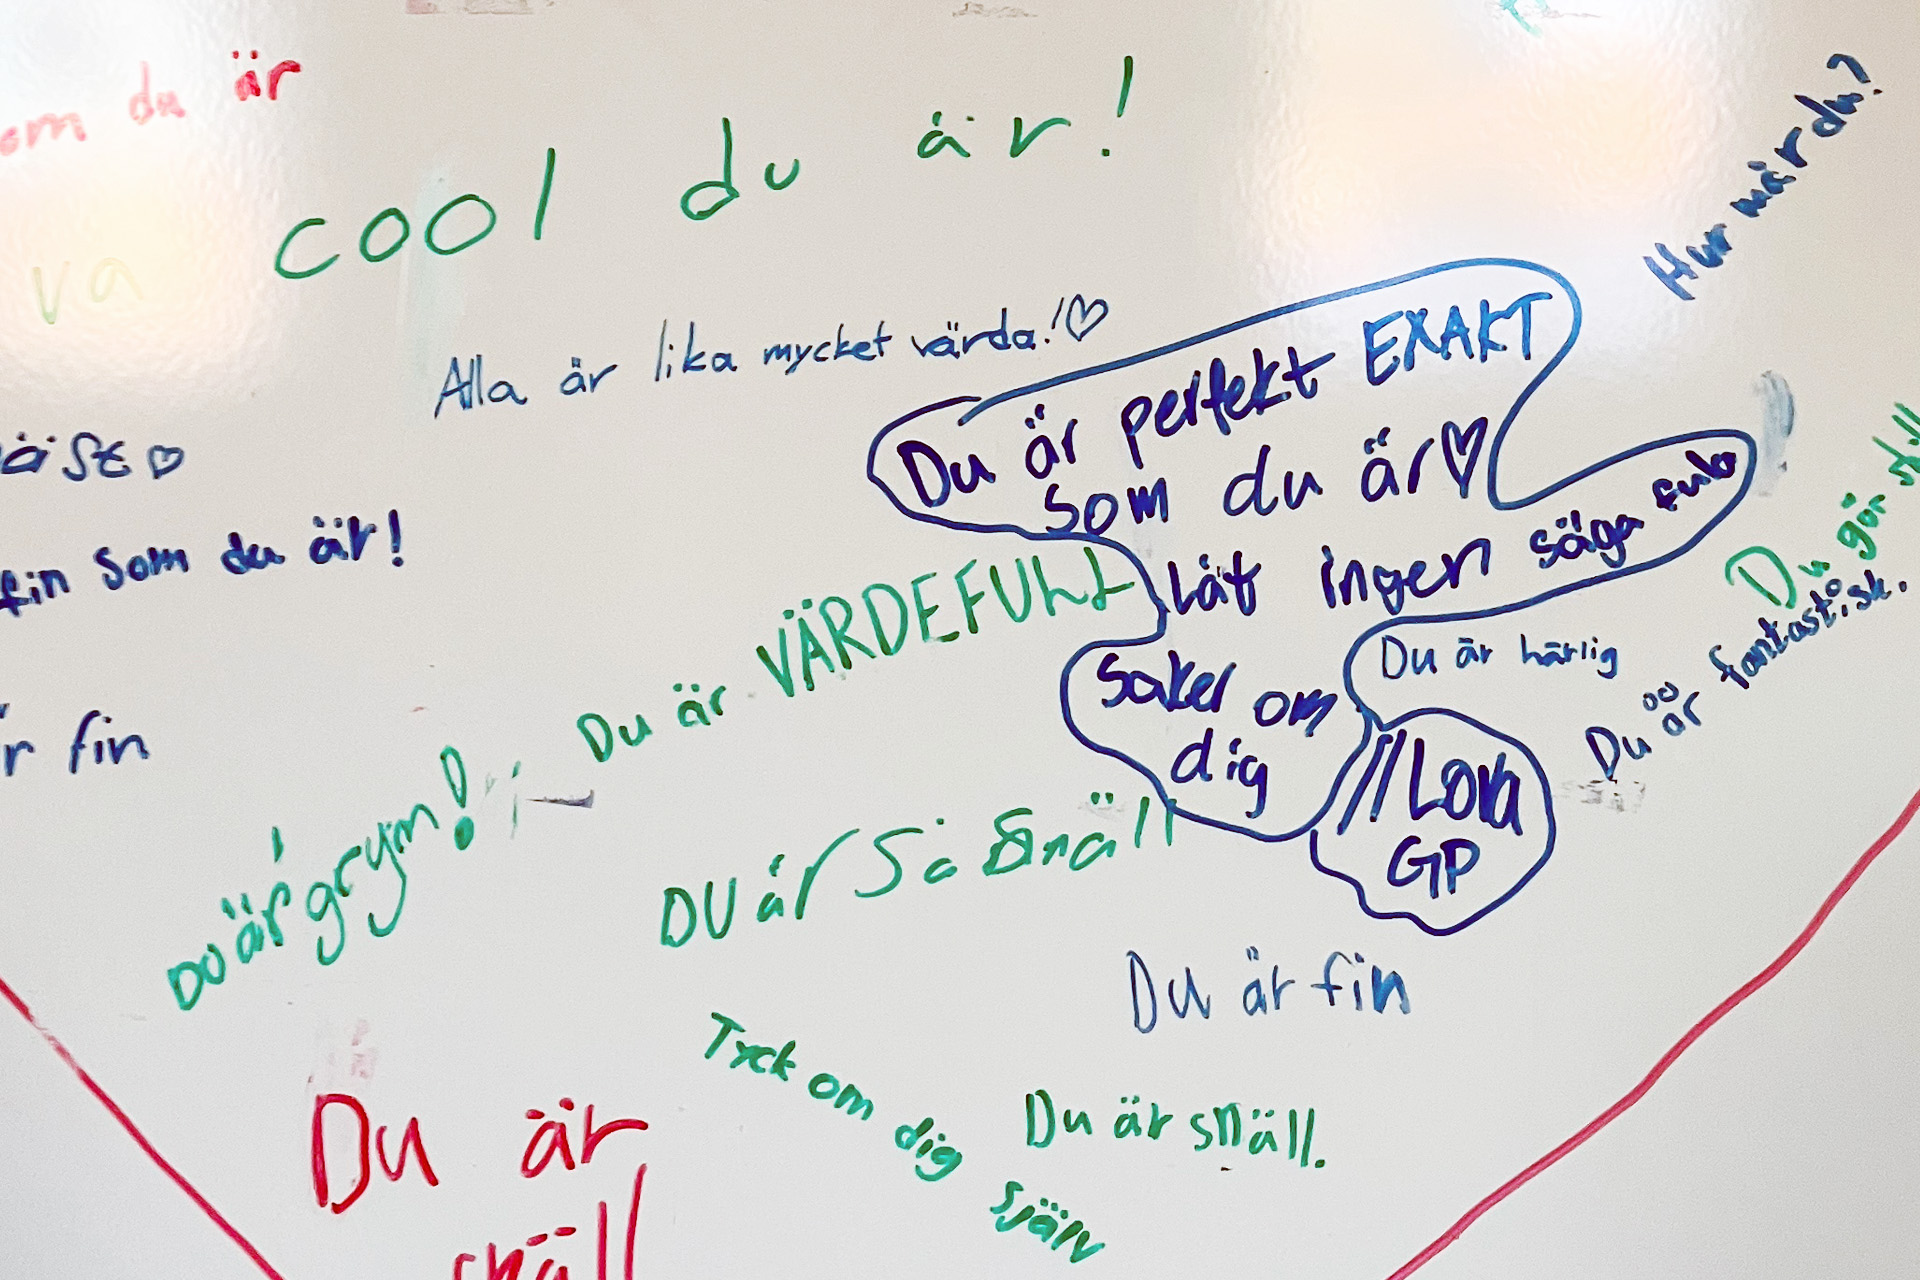 om du är
va cool du är!
Hur mår du?
Alla är lika mycket värda!♡
Du är perfekt EXAKT
som du är♡
Låt ingen säga fula
saker om
dig
//Lova
GP
äst♡
fin som du är!
Du är VÄRDEFULL
Du är härlig
Du gör
Du är fantastisk.
r fin
DU är grym!
DU är så snäll
Du är fin
Tyck om dig själv
Du är snäll.
Du är
snäll